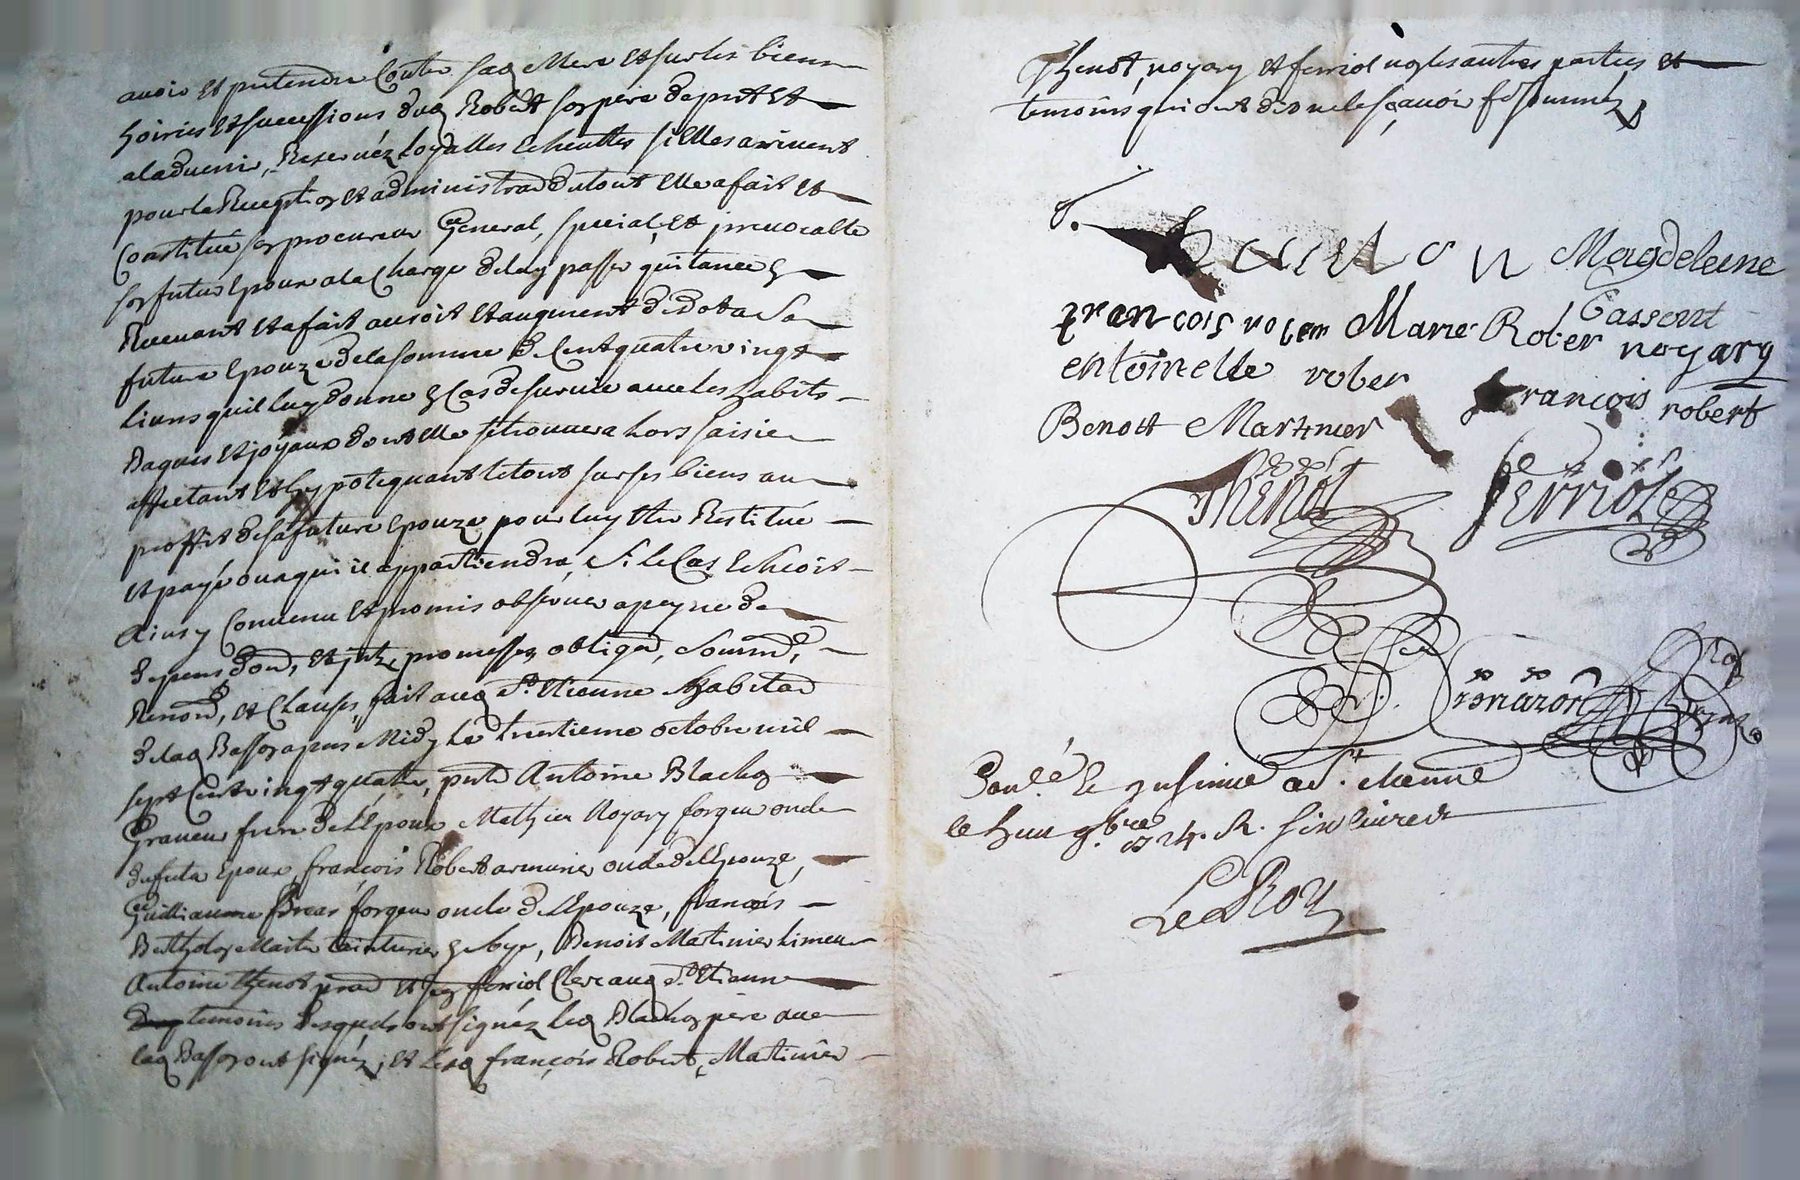 avoir et pretendre Contre sad Mere et sur les biens
hoiries et successions dud Robert son pere de prt et
aladvenir, Reservéz loyalles Echeuttes sillesarivent
pour la Reception et administraõn dutout Elle a fait et
Constitué son procureur General, special, et irrevocable
son futur Epoux ala Charge deluy passer quitance En
Recevant et a fait aussoit et augment de Dot a Sa
future Epouze de la somme de Cent quatre vingt
livres quil luy donne En Cas de survie avec les habits
Bagues et joyaux dont Elle se trouvera hors saisie
affectant et hypotequant le tout sur ses biens au
proffit de sa future Epouze pour luy Etre Restitué
Et payé ou a qui il appartiendra, Si le Cas Echeoit
Ainsy Convenu et promis observer a peyne de
depens dom, et jnts, promesses, obligaõ, Soumõ,
Renonõ, et Clauses, fait aud St. Etienne habitaõ
de lad Basson apres Midy Le trentieme octobre mil
sept Cent vingt quatre, pnts Antoine Blachon
Graveur frere de L'Epoux Mathieu Noyary forgeur oncle
du futur Epoux, françois Robert armurier oncle de l'Epouze,
Guilliaume forgeur oncle de l'Epouze, francois
Berthelon Maitre teinturier Benoit Martinier limeur
Antoine thenot praõ et ferriol Clerc aud St. Etienne
temoins Lesquels ont signéz led Blachon pere avec
lad Basson ont signéz, et lesd françois Robert, Martinier
thenot, noyary et ferriol non les autres parties et
temoins qui ont dit ne le sçavoir de ce sommés
Magdeleine
françois rober Marie Rober Noyary
entoinette rober françois robert
Benoit Martinier
Thenot ferriol
Conlé. & Insinué a St. etienne
le huit 9bre 1724. R. six livres
Le Roy